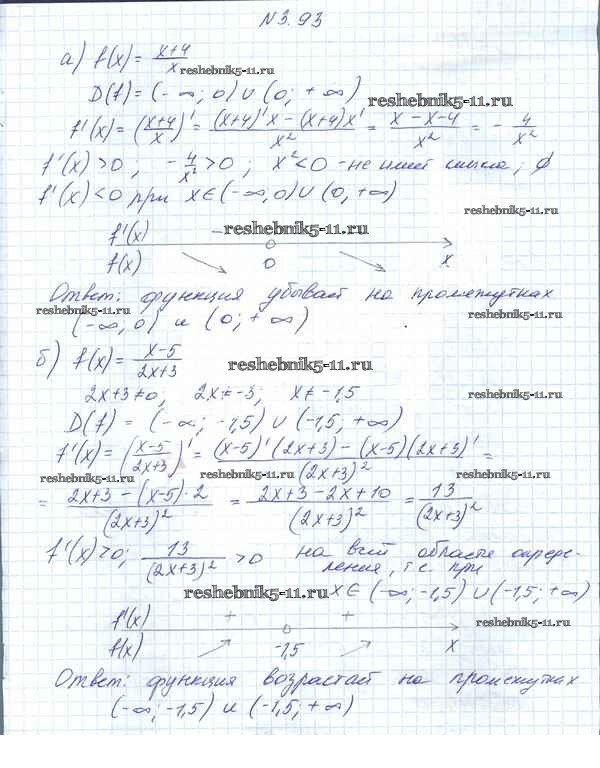 N3.93
а) f(x) = (x+4)/x
reshebnik5-11.ru
D(f) = (-∞; 0) ∪ (0; +∞)
reshebnik5-11.ru
f'(x) = ((x+4)/x)' = ((x+4)'x - (x+4)x')/x² = (x-x-4)/x² = -4/x²
f'(x) > 0; -4/x² > 0; x² < 0 - не имеет смысла; ∅
f'(x) < 0 при x ∈ (-∞, 0) ∪ (0, +∞)
reshebnik5-11.ru
f'(x) - reshebnik5-11.ru
f(x) ↘ 0 ↘ x
Ответ: функция убывает на промежутках
reshebnik5-11.ru reshebnik5-11.ru
(-∞, 0) и (0; +∞)
б) f(x) = (x-5)/(2x+3)
reshebnik5-11.ru
2x+3≠0, 2x≠-3; x≠-1,5
reshebnik5-11.ru
D(f) = (-∞; -1,5) ∪ (-1,5; +∞)
f'(x) = ((x-5)/(2x+3))' = ((x-5)'(2x+3) - (x-5)(2x+3)')/(2x+3)² =
reshebnik5-11.ru reshebnik5-11.ru reshebnik5-11.ru
= (2x+3-(x-5)·2)/(2x+3)² = (2x+3-2x+10)/(2x+3)² = 13/(2x+3)²
f'(x) > 0; 13/(2x+3)² > 0 на всей области опреде-
ления, т.е. при
reshebnik5-11.ru x ∈ (-∞; -1,5) ∪ (-1,5; +∞)
f'(x) + + reshebnik5-11.ru
f(x) ↗ -1,5 ↗ x
Ответ: функция возрастает на промежутках
(-∞; -1,5) и (-1,5; +∞)